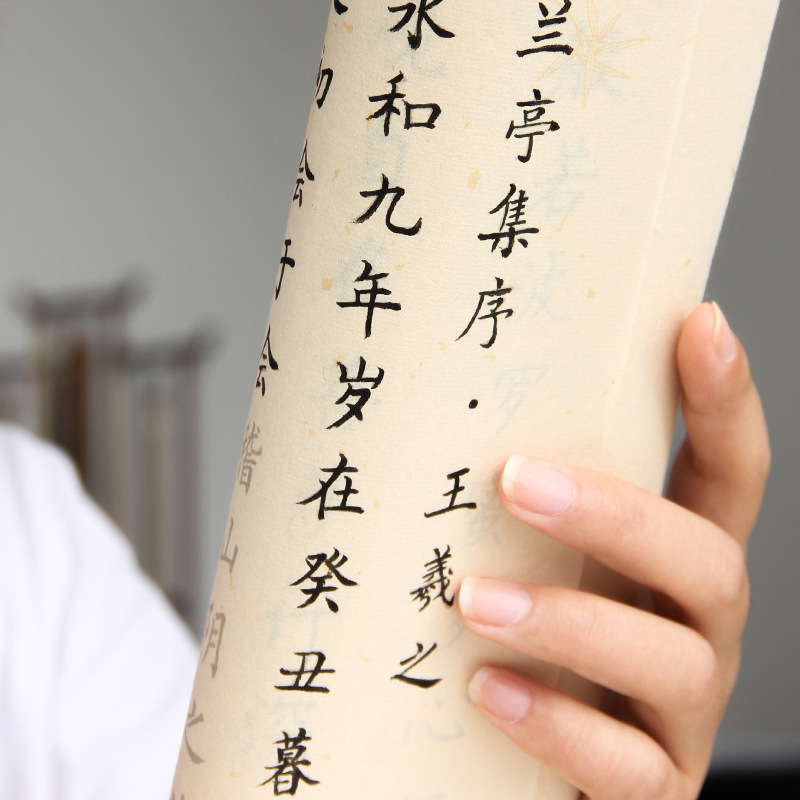 兰亭集序·王羲之
永和九年岁在癸丑暮
初会于会稽山阴之